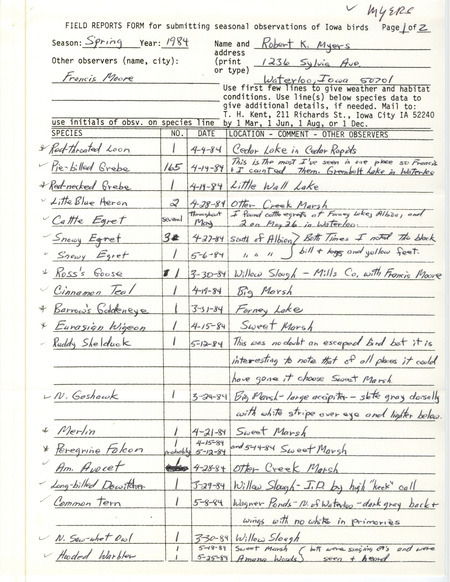 ✓ MYERS
FIELD REPORTS FORM for submitting seasonal observations of Iowa birds Page 1 of 2
Season: Spring Year: 1984 Name and Robert K. Myers
address
Other observers (name, city): (print 1236 Sylvia Ave.
or type)
Francis Moore Waterloo, Iowa 50701
Use first few lines to give weather and habitat
conditions. Use line(s) below species data to
give additional details, if needed. Mail to:
T. H. Kent, 211 Richards St., Iowa City IA 52240
use initials of obsv. on species line by 1 Mar, 1 Jun, 1 Aug, or 1 Dec.
SPECIES NO. DATE LOCATION - COMMENT - OTHER OBSERVERS
* Red-throated Loon 1 4-4-84 Cedar Lake in Cedar Rapids
✓ Pie-billed Grebe 165 4-14-84 This is the most I've seen in one place so Francis
& I counted them. Greenbelt Lake in Waterloo
* Red-necked Grebe 1 4-19-84 Little Wall Lake
✓ Little Blue Heron 2 4-28-84 Otter Creek Marsh
✓ Cattle Egret several throughout May I found cattle egrets at Forney Lake, Albion, and
2 on May 26 in Waterloo.
✓ Snowy Egret 3 4-27-84 South of Albion } Both Times I noted the black
✓ Snowy Egret 1 5-6-84 " " " } bill & legs and yellow feet.
* Ross's Goose 1 3-30-84 Willow Slough - Mills Co. with Francis Moore
✓ Cinnamon Teal 1 4-19-84 Big Marsh
* Barrow's Goldeneye 1 3-31-84 Forney Lake
* Eurasian Wigeon 1 4-15-84 Sweet Marsh
✓ Ruddy Shelduck 1 5-12-84 This was no doubt an escaped bird but it is
interesting to note that of all places it could
have gone it chose Sweet Marsh
✓ N. Goshawk 1 3-24-84 Big Marsh - large accipiter - slate gray dorsally
with white stripe over eye and lighter below.
* Merlin 1 4-21-84 Sweet Marsh
* Peregrine Falcon 1 4-15-84
probably 1 5-12-84 and 5-14-84 Sweet Marsh
✓ Am. Avocet 1 4-28-84 Otter Creek Marsh
✓ Long-billed Dowitcher 1 3-29-84 Willow Slough - I.D. by high "keek" call
✓ Common Tern 1 5-8-84 Wagner Ponds - N. of Waterloo - dark gray back &
wings with no white in primaries
✓ N. Saw-whet Owl 1 3-30-84 Willow Slough
✓ Hooded Warbler 1 5-18-84 Sweet Marsh ( both were singing ♂'s and were
1 5-25-84 Amana Woods ) seen & heard